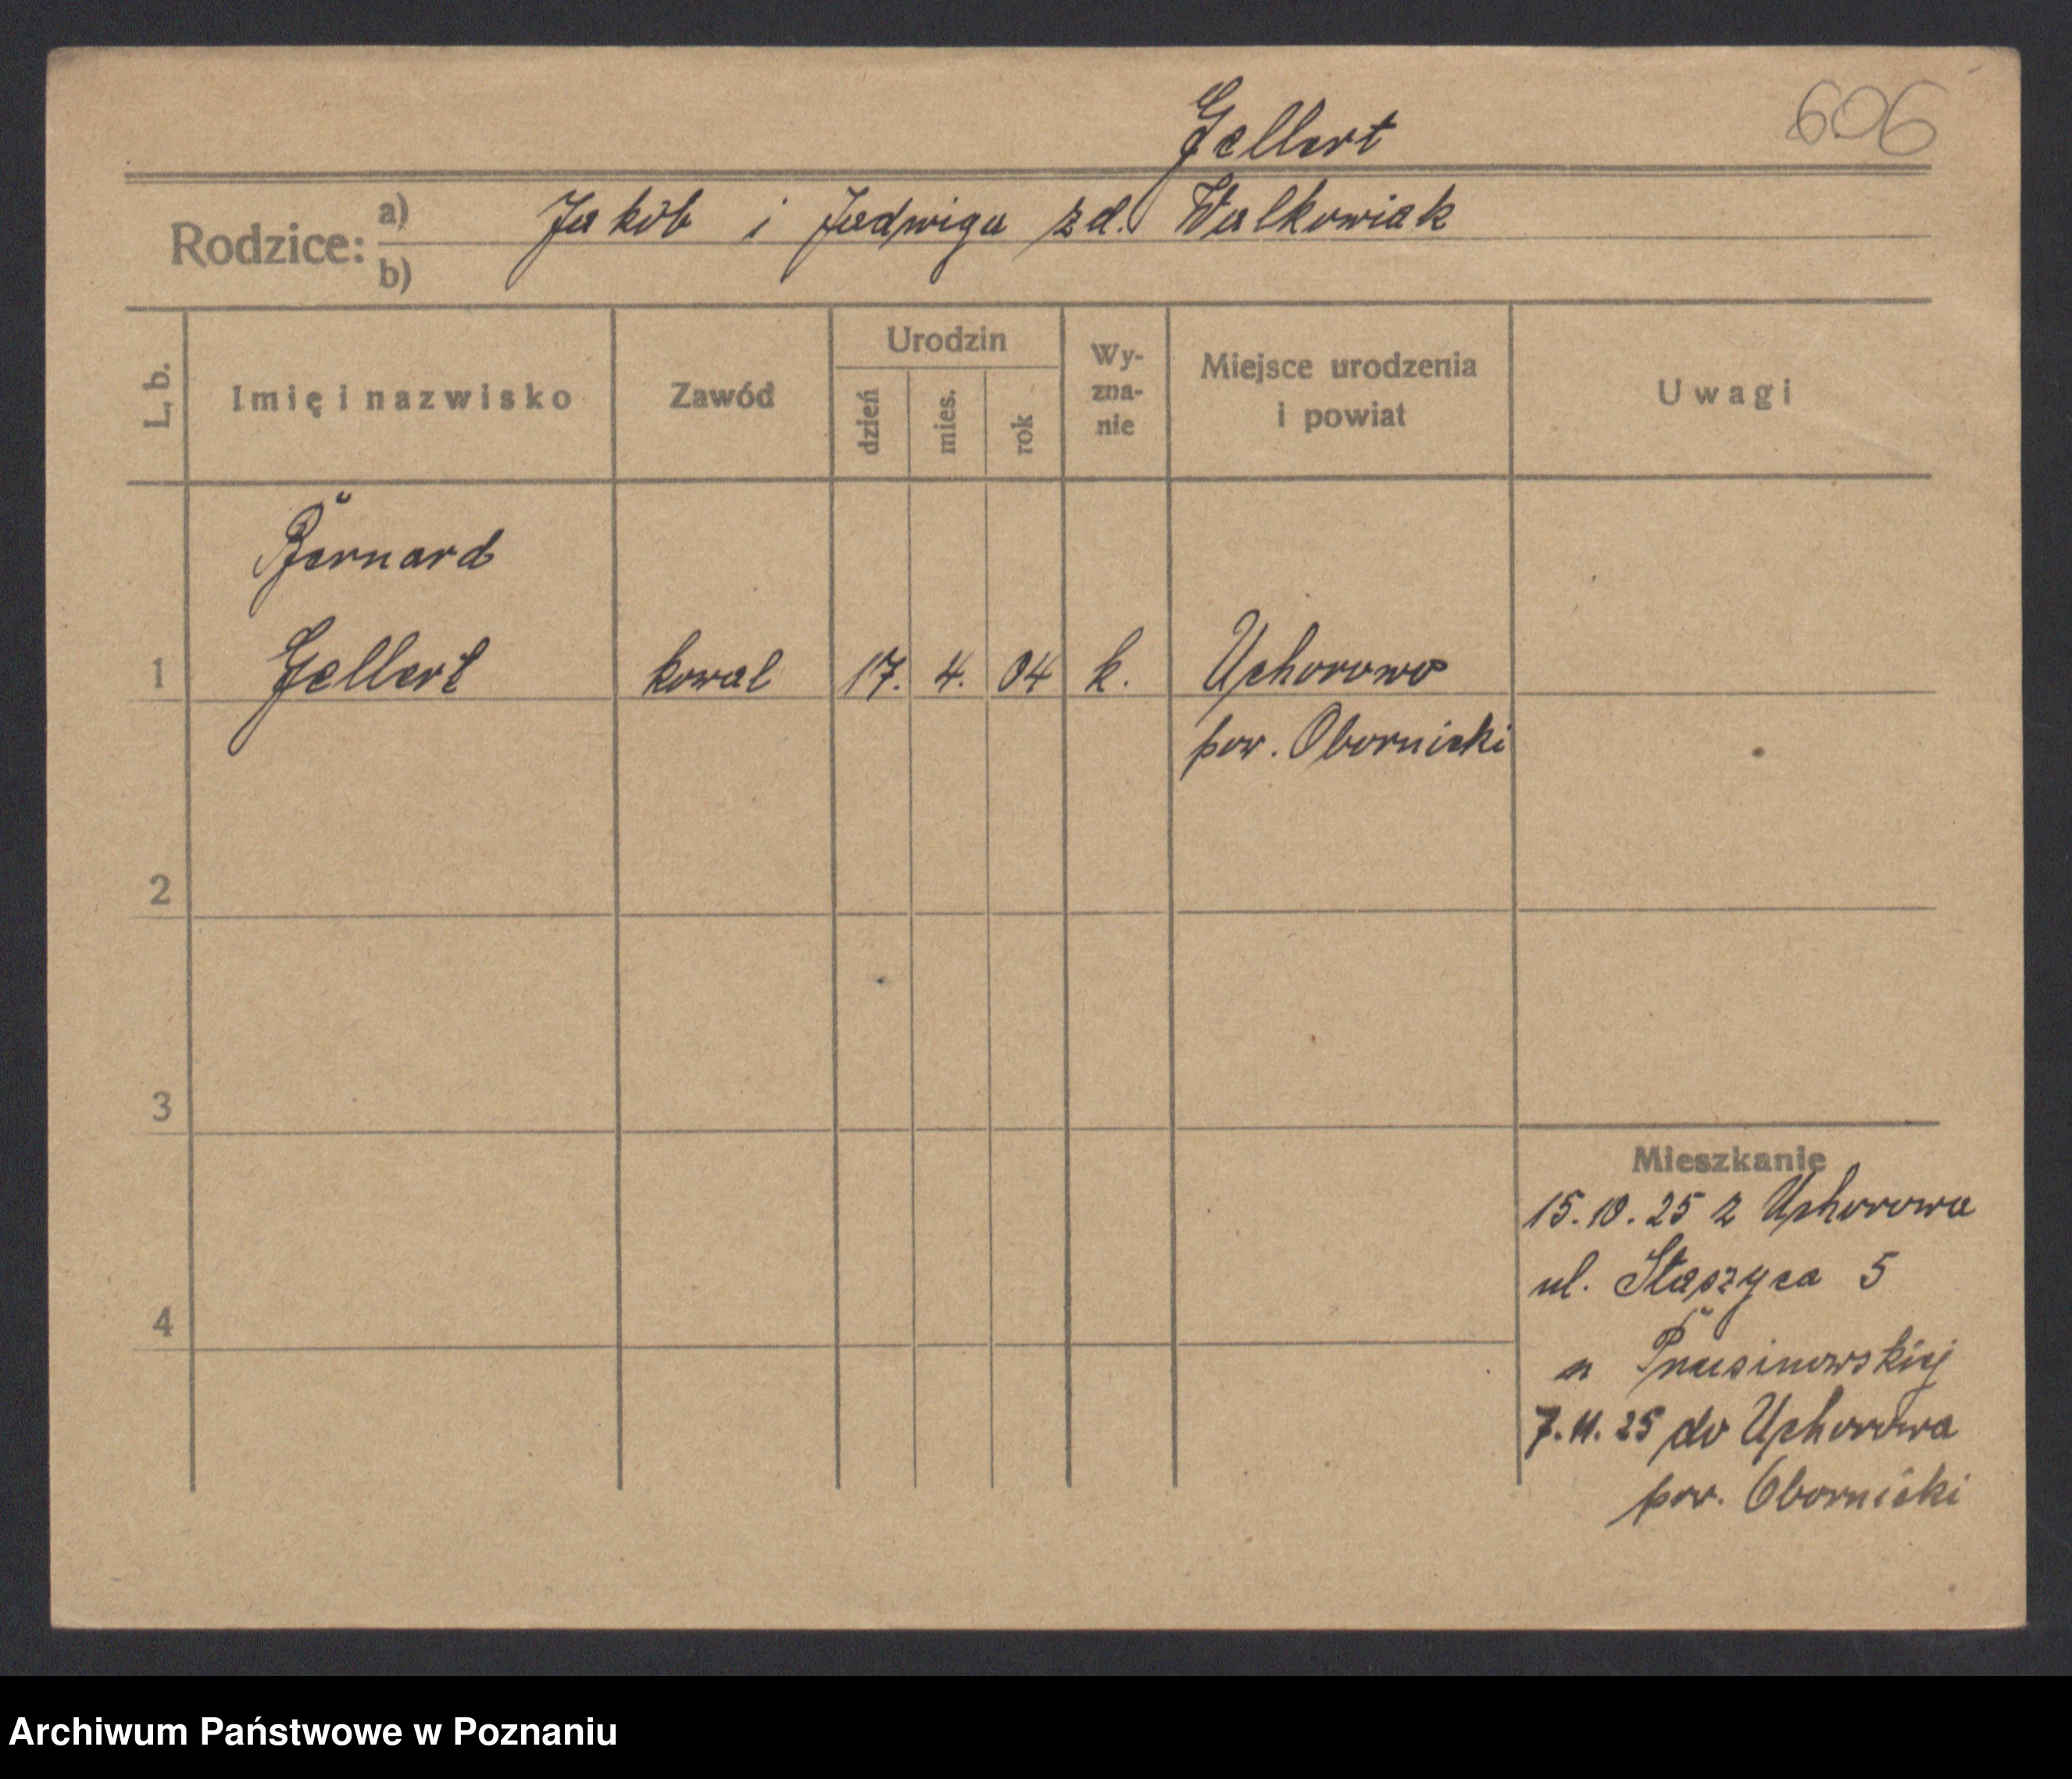 Gellert
606
Rodzice:
a) Jakób i Jadwiga zd. Walkowiak
b)
L. b.
Imię i nazwisko
Zawód
Urodzin
dzień
mies.
rok
Wy-
zna-
nie
Miejsce urodzenia
i powiat
Uwagi
Bernard
1 Gellert kowal 17. 4. 04 k. Uchorowo
pow. Obornicki
2
3
4
Mieszkanie
15.10.25 z Uchorowa
ul. Staszyca 5
u Prusinowskiej
7.11.25 do Uchorowa
pow. Obornicki
Archiwum Państwowe w Poznaniu